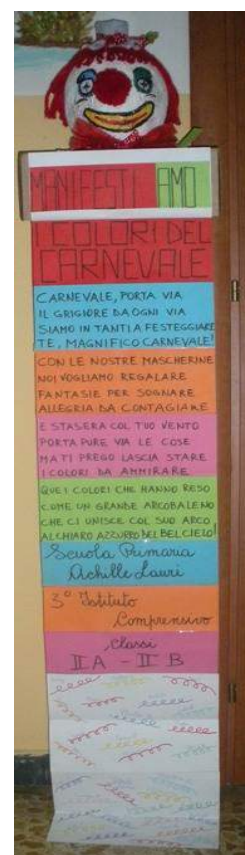 MANIFESTI AMO
I COLORI DEL
CARNEVALE
CARNEVALE, PORTA VIA
IL GRIGIORE DA OGNI VIA
SIAMO IN TANTI A FESTEGGIARE
TE, MAGNIFICO CARNEVALE!
CON LE NOSTRE MASCHERINE
NOI VOGLIAMO REGALARE
FANTASIE PER SOGNARE
ALLEGRIA DA CONTAGIARE
E STASERA COL TUO VENTO
PORTA PURE VIA LE COSE
MA TI PREGO LASCIA STARE
I COLORI DA AMMIRARE
QUEI COLORI CHE HANNO RESO
COME UN GRANDE ARCOBALENO
CHE CI UNISCE COL SUO ARCO
AL CHIARO AZZURRO DEL BEL CIELO!
Scuola Primaria
Achille Lauri
3° Istituto
Comprensivo
Classi
II A - II B